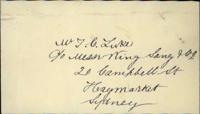 Mr T. C. Luke
c/o Messrs King Sons & Co
20 Campbell St
Haymarket
Sydney